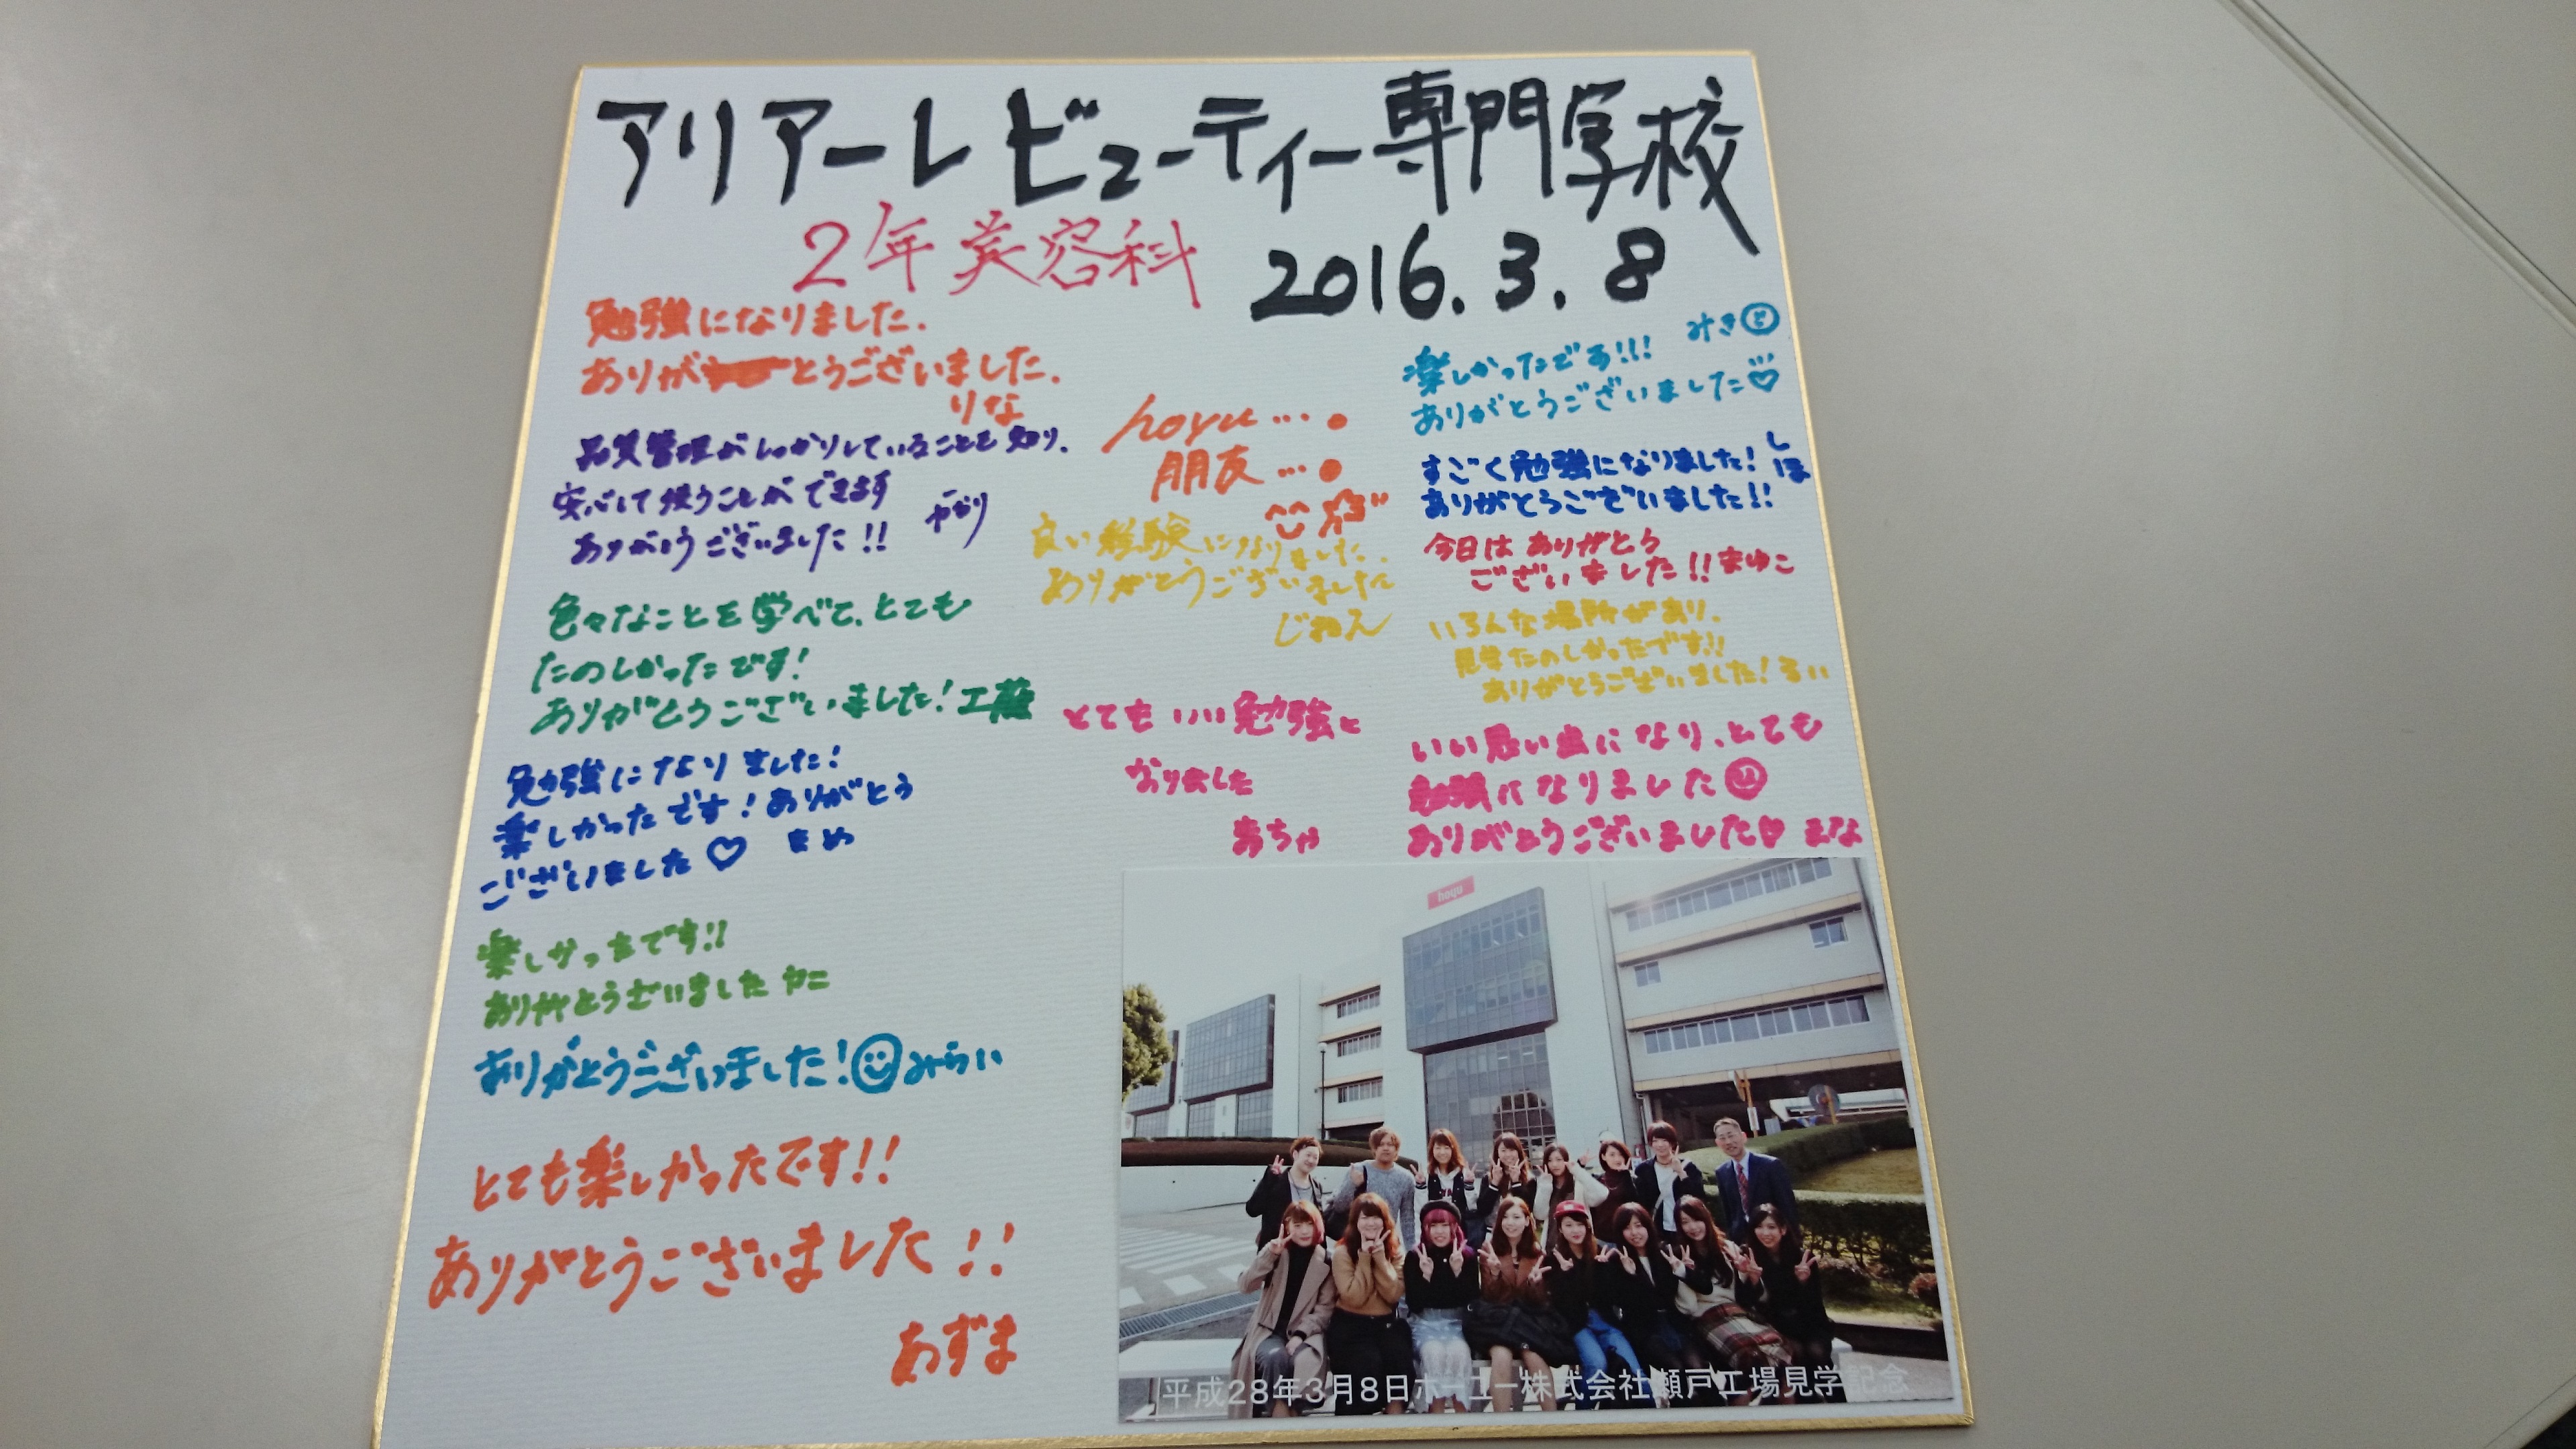 アリアーレビューティー専門学校
2年美容科
2016.3.8
勉強になりました.
ありがとうございました.
りな
品質管理がしっかりしていることを知り.
安心して使うことができます
ありがとうございました!!
色々なことを学べて、とても
たのしかったです!
ありがとうございました!工藤
勉強になりました!
楽しかったです!ありがとう
ございました♡ まめ
楽しかったです!!
ありがとうざいました カニ
ありがとうございました!みらい
とても楽しかったです!!
ありがとうございました!!
あずま
hoyu...
朋友...
良い経験になりました.
ありがとうございました
じねん
とてもいい勉強と
なりました
あちゃ
みき
楽しかったです!!!
ありがとうございました♡
すごく勉強になりました! しほ
ありがとうございました!!
今日はありがとう
ございました!!まゆこ
いろんな場所があり.
見学たのしかったです!!
ありがとうございました!るい
いい思い出になり、とても
勉強になりました
ありがとうございました♡ まな
hoyu
平成28年3月8日ホーユー株式会社瀬戸工場見学記念